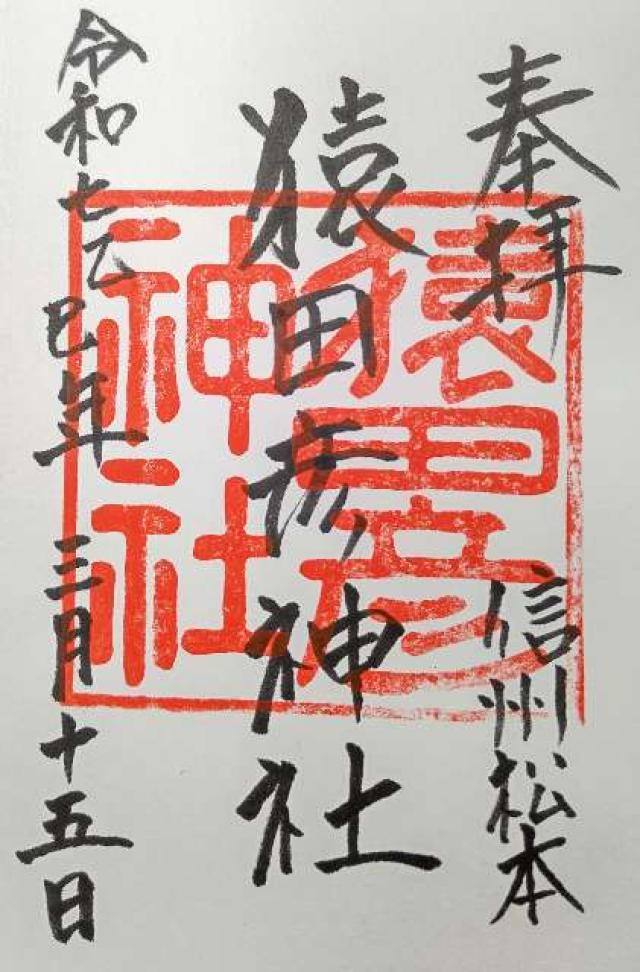 奉拝
信州松本
猿田彦神社
猿田彦神社
令和七乙巳年三月十五日